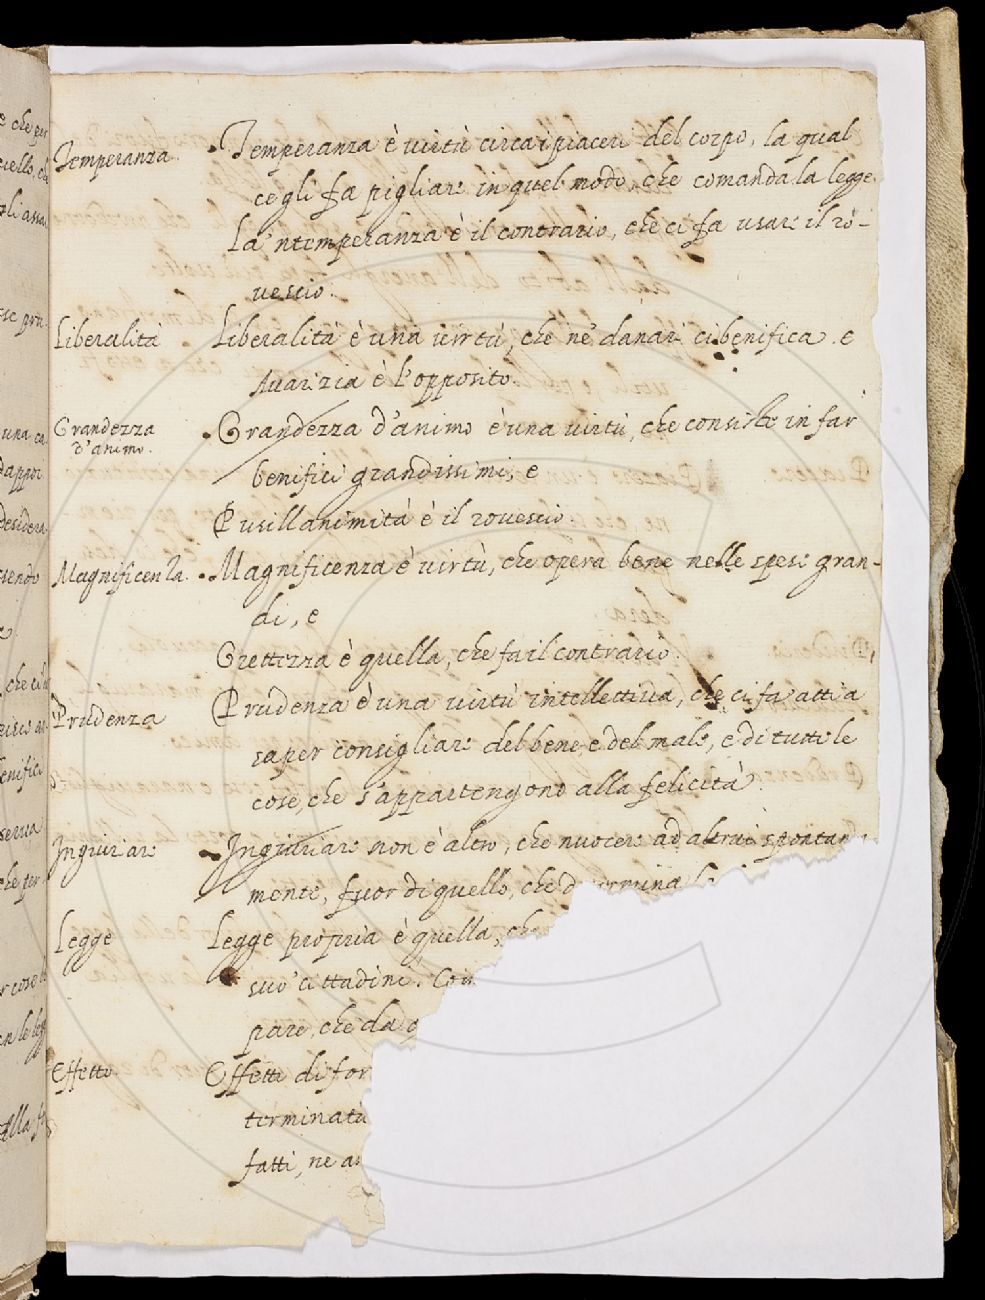 Temperanza. Temperanza è virtù circa i piaceri del corpo, la qual
cegli fa pigliare in quel modo, che comanda la legge.
La'ntemperanza è il contrario, che ci fa usare il ro-
vescio.
Liberalità Liberalità è una virtù, che ne' danari ci benifica. e
Avarizia è l'opposito.
Grandezza d'animo. Grandezza d'animo è una virtù, che consiste in far
benifici grandissimi, e
Pusillanimità è il rovescio.
Magnificenza. Magnificenza è virtù, che opera bene nelle spese gran-
di, e
Grettezza è quella, che fa il contrario.
Prudenza Prudenza è una virtù intellettiva, che ci fa atti a
saper consigliare del bene, e del male, e di tutte le
cose, che s'appartengono alla felicità.
Ingiuriare Ingiuriare non è altro, che nuocere ad altrui spontan
mente, fuor di quello, che
Legge Legge propria è quella, che
suo' cittadini. Com
pare, che da q
Effetto. Effetti di for
terminata
fatti, ne a